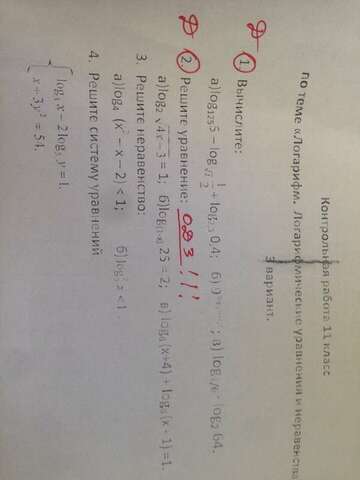 Контрольная работа 11 класс
по теме «Логарифм. Логарифмические уравнения и неравенства
3 вариант.
Д 1. Вычислите:
а) log₁₂₅ 5 − log√₂ 1/2 + log 0,4; б) в) log log₂ 64.
Д 2. Решите уравнение: ОДЗ!!!
а) log₂ √4x − 3 = 1; б) 25 = 2; в) log₆(x+4) + log₆(x + 1) = 1.
3. Решите неравенство:
а) log₄ (x² − x − 2) < 1; б) log x < 1
4. Решите систему уравнений
log x − 2log y = 1,
x + 3y² = 54.